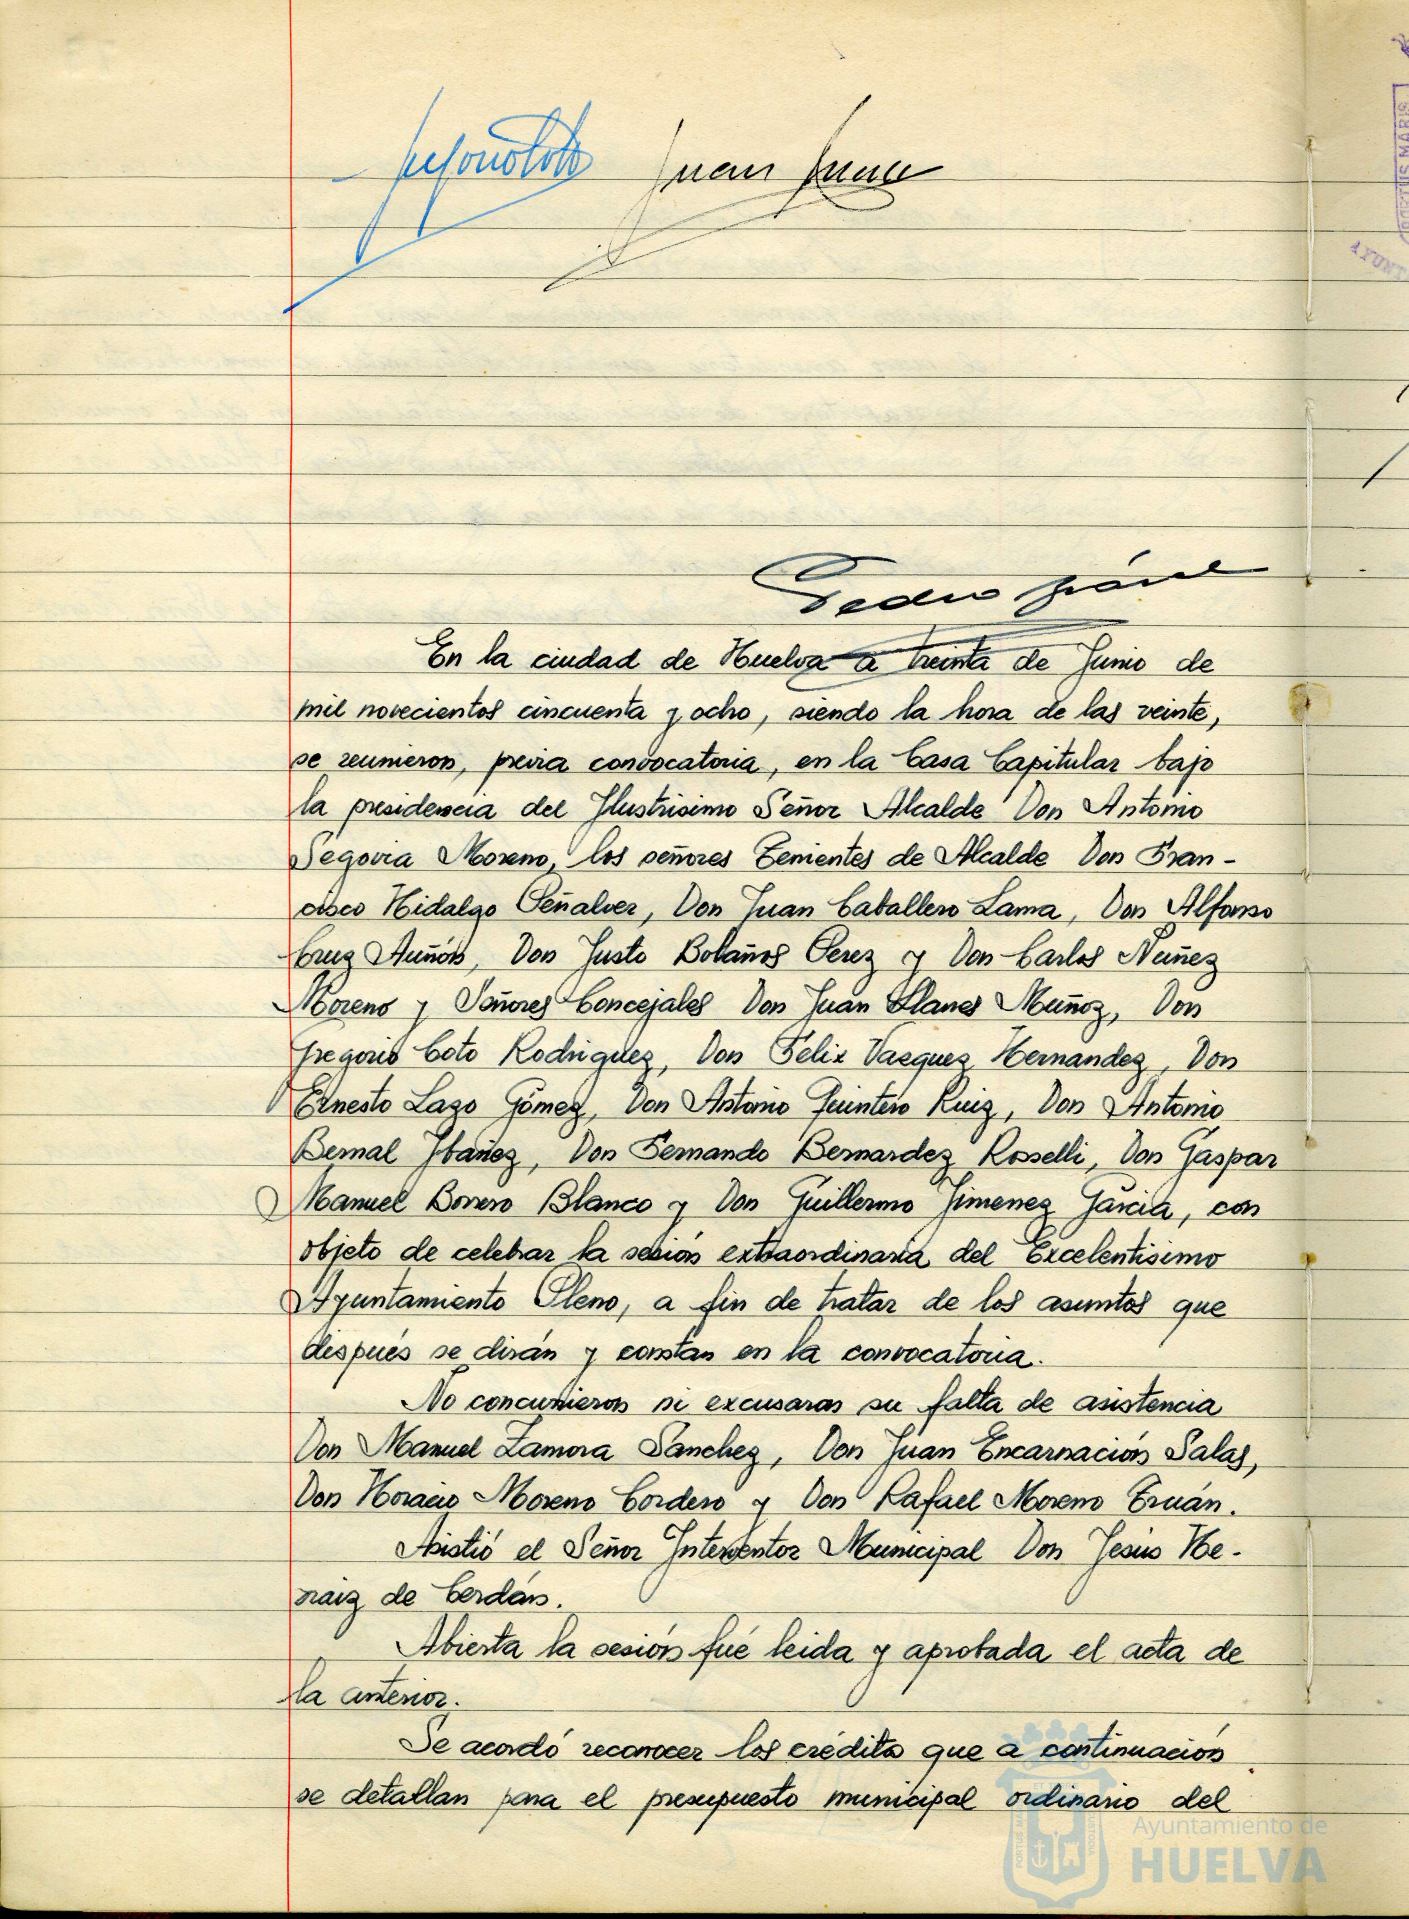 Juan
Pedro
En la ciudad de Huelva a treinta de Junio de
mil novecientos cincuenta y ocho, siendo la hora de las veinte,
se reunieron, previa convocatoria, en la Casa Capitular bajo
la presidencia del Ilustrisimo Señor Alcalde Don Antonio
Segovia Moreno, los señores Tenientes de Alcalde Don Fran-
cisco Hidalgo Peñalver, Don Juan Caballero Lama, Don Alfonso
Cruz Auñón, Don Justo Bolaños Perez y Don Carlos Nuñez
Moreno y Señores Concejales Don Juan Llanes Muñoz, Don
Gregorio Coto Rodriguez, Don Felix Vazquez Hernandez, Don
Ernesto Lazo Gómez, Don Antonio Quintero Ruiz, Don Antonio
Bernal Ibañez, Don Fernando Bernardez Rosselli, Don Gaspar
Manuel Borrero Blanco y Don Guillermo Jimenez Garcia, con
objeto de celebrar la sesión extraordinaria del Excelentisimo
Ayuntamiento Pleno, a fin de tratar de los asuntos que
después se dirán y constan en la convocatoria.
No concurrieron ni excusaron su falta de asistencia
Don Manuel Zamora Sanchez, Don Juan Encarnación Salas,
Don Horacio Moreno Cordero y Don Rafael Moreno Eruán.
Asistió el Señor Interventor Municipal Don Jesús He-
raiz de Cerdán.
Abierta la sesión fué leida y aprobada el acta de
la anterior.
Se acordó reconocer los crédito que a continuación
se detallan para el presupuesto municipal ordinario del
PORTUS MARIS
AYUNT
Ayuntamiento de
HUELVA